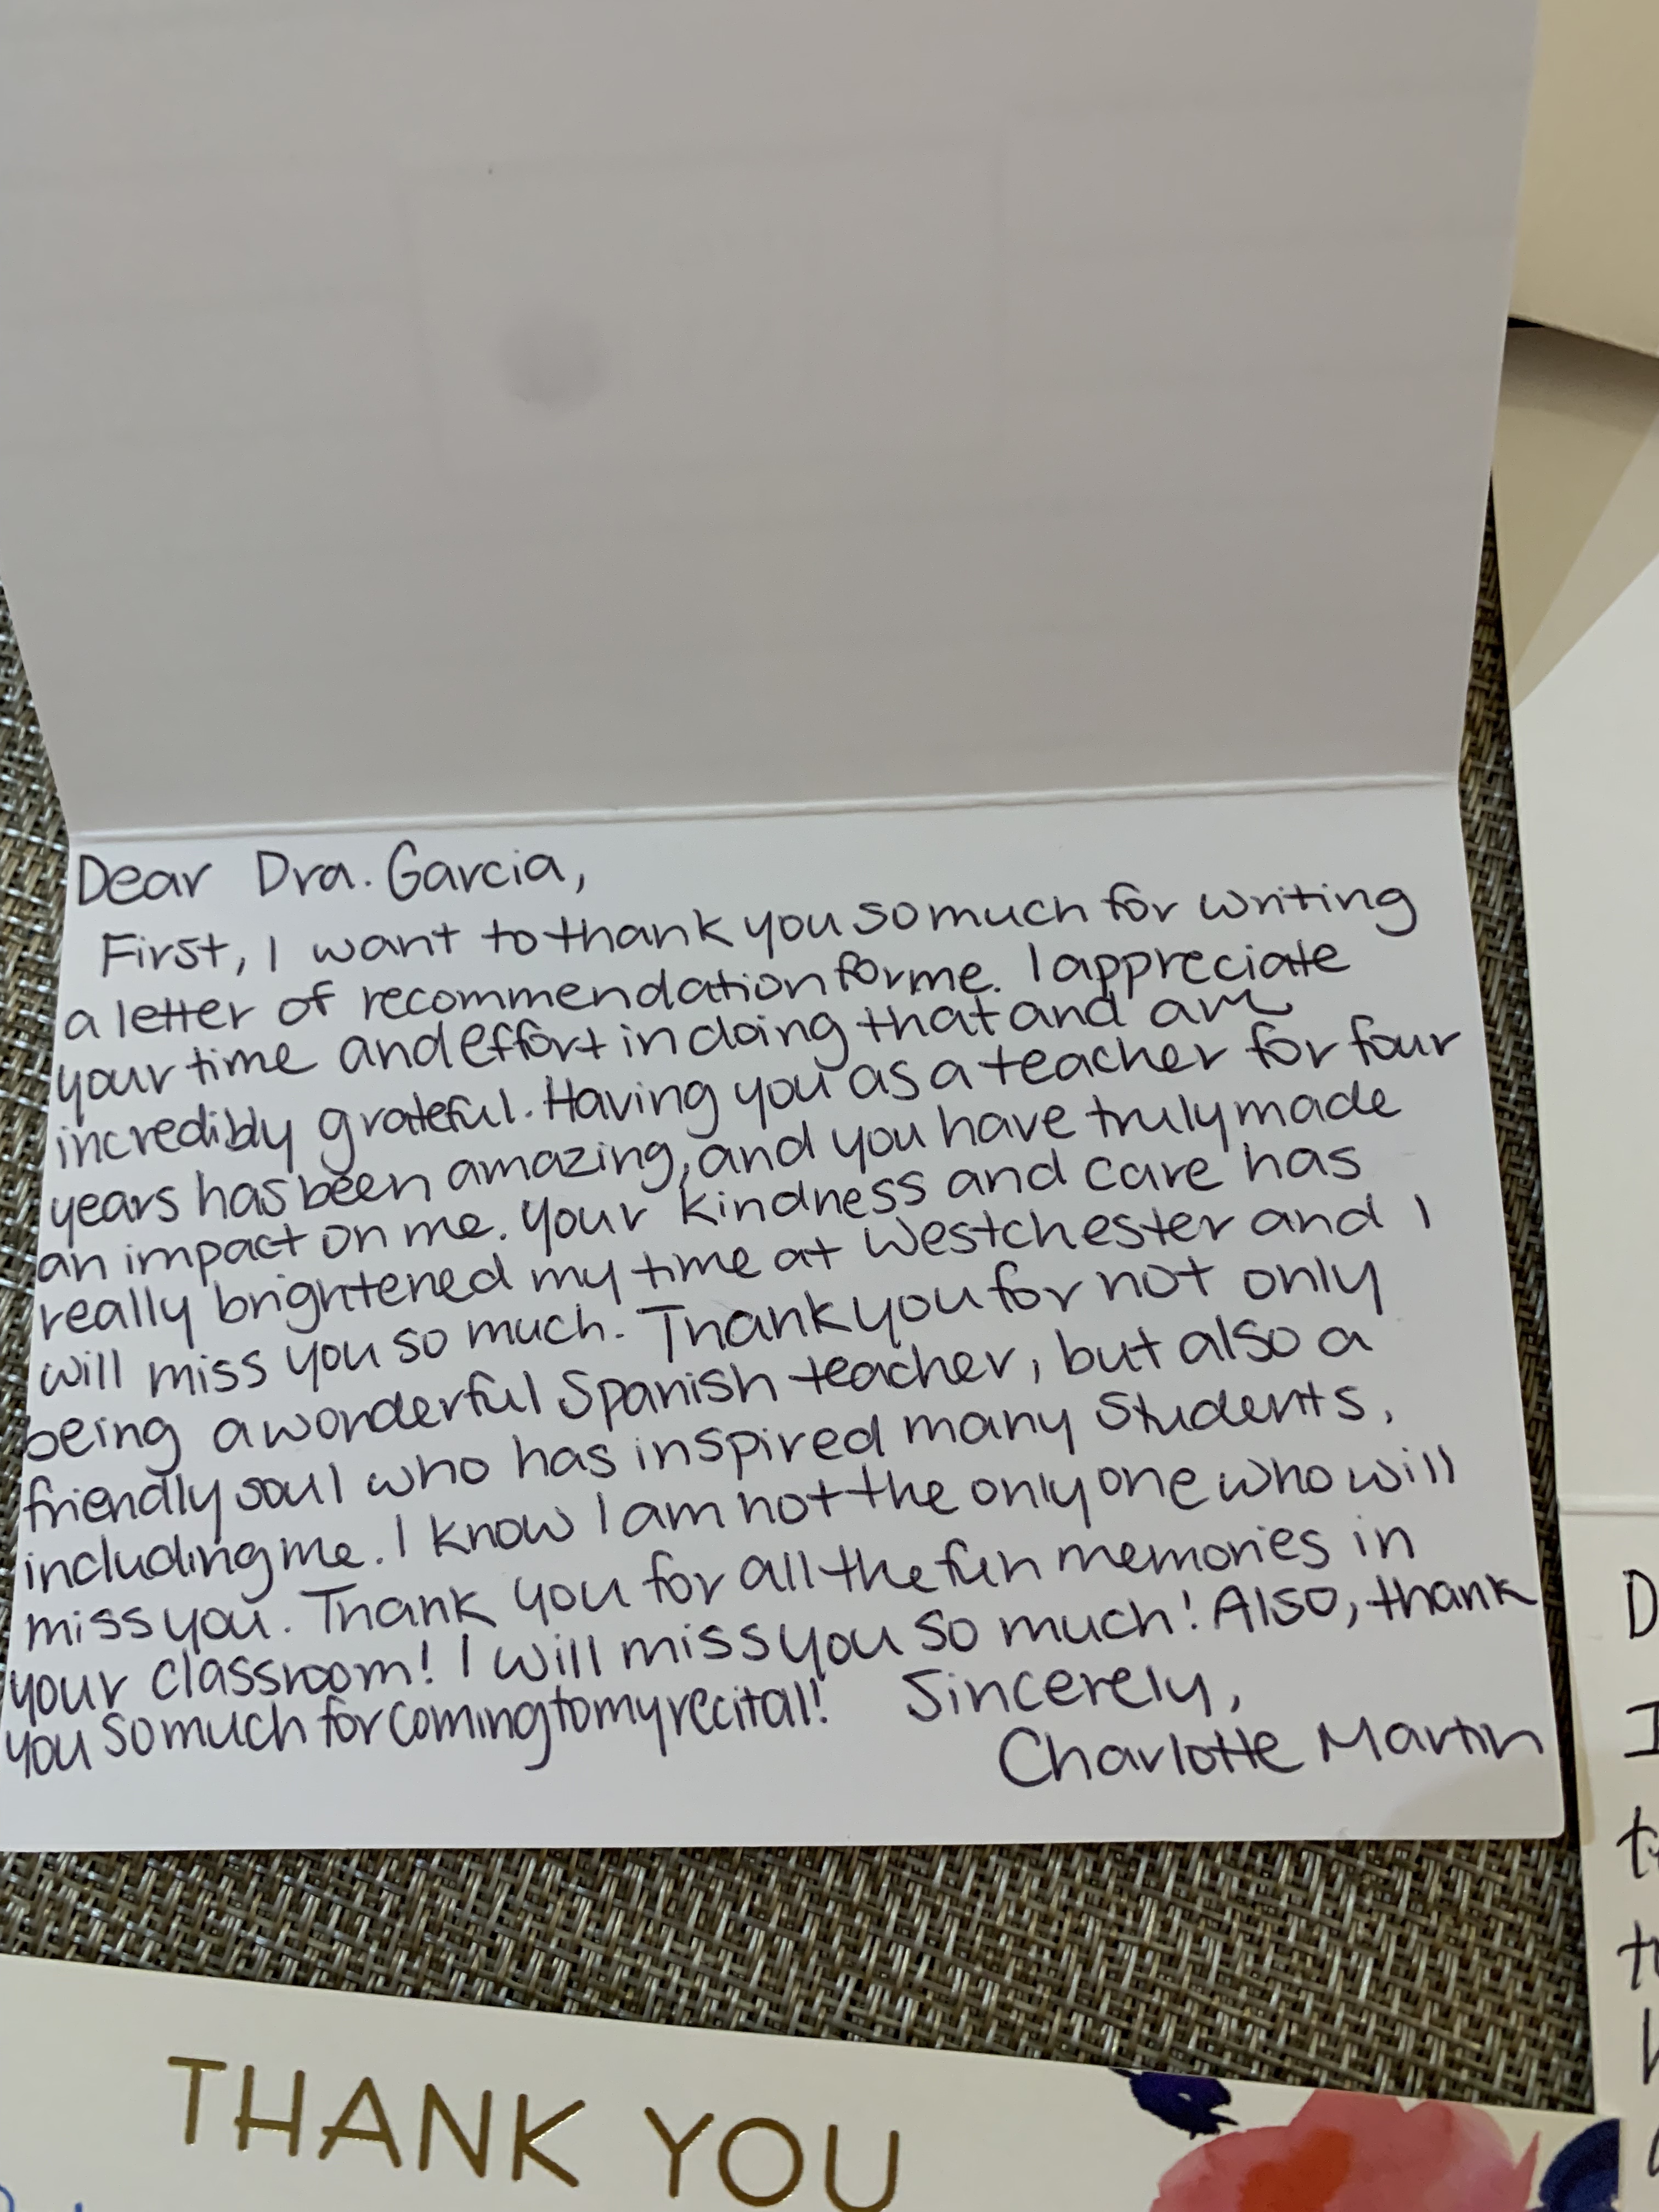 Dear Dra. Garcia,
First, I want to thank you so much for writing
a letter of recommendation for me. I appreciate
your time and effort in doing that and am
incredibly grateful. Having you as a teacher for four
years has been amazing, and you have truly made
an impact on me. Your kindness and care has
really brightened my time at Westchester and I
will miss you so much. Thank you for not only
being a wonderful Spanish teacher, but also a
friendly soul who has inspired many students,
including me. I know I am not the only one who will
miss you. Thank you for all the fun memories in
your classroom! I will miss you so much! Also, thank
you so much for coming to my recital! Sincerely,
Charlotte Martin
THANK YOU
D
I